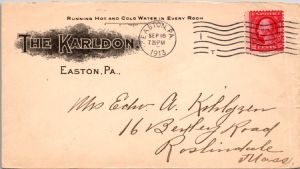 RUNNING HOT AND COLD WATER IN EVERY ROOM
THE KARLDON
EASTON, PA.,
EASTON, PA.
SEP 16
7 PM
1913
Mrs Edw. A. Kohlgen
16 Bexley Road
Roslindale
Mass.